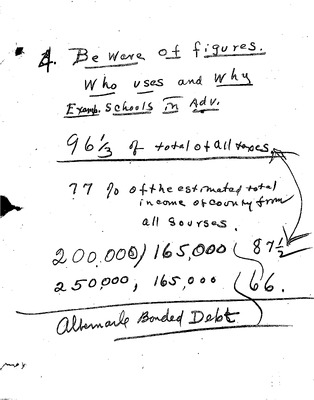 4. Beware of figures.
Who uses and Why
Examb. Schools in Adv.
96⅓ of total of all taxes
77 % of the estimated total
income of county from
all sourses.
200,000) 165,000 87½
250,000, 165,000 66.
Albemarle Bonded Debt